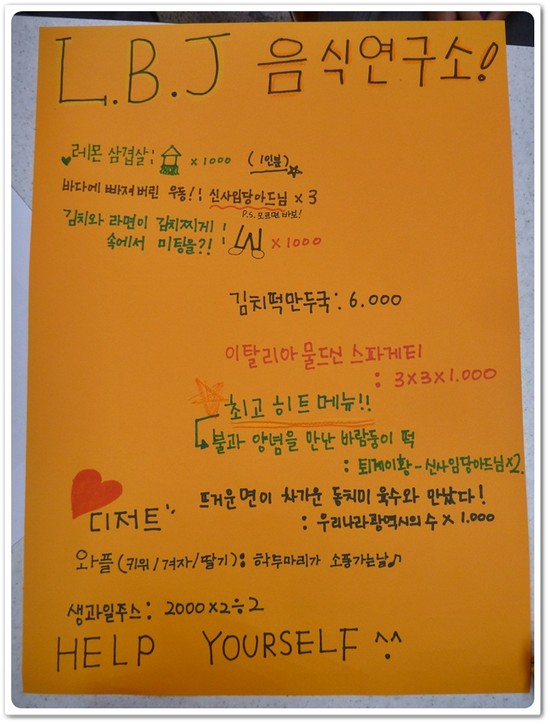 L.B.J 음식연구소!
♥레몬 삼겹살: x 1000 (1인분)☆
바다에 빠져버린 우동!: 신사임당아드님 x 3
P.S. 모르면 바보!
김치와 라면이 김치찌개
속에서 미팅을?!: x 1000
김치떡만두국: 6.000
이탈리아 물드신 스파게티
: 3x3x1.000
최고 히트 메뉴!!
불과 양념을 만난 바람둥이 떡
: 퇴계이황-신사임당아드님x2.
뜨거운면이 차가운 동치미 육수와 만났다!
: 우리나라광역시의 수 x 1.000
디저트
와플(키위/겨자/딸기): 학두마리가 소풍가는날♪
생과일주스: 2000x2÷2
HELP YOURSELF ^^